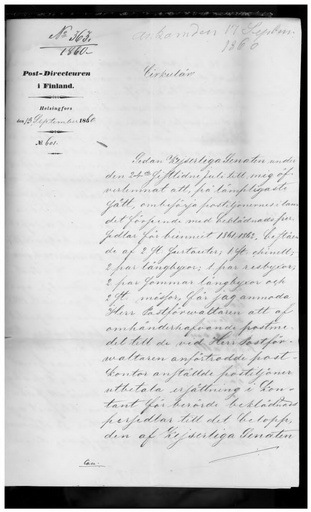 No 363.
1860.
ankom den 17 Septem
1860
Post-Directeuren
i Finland.
Helsingfors
den 13 September 1860
No 601.
Cirkulär
Sedan Kejserliga Senaten under
den 24de sistlidne Juli till mig öf-
verlemnat att, på lämpligaste
sätt, ombesörja postiljonernes i lan
det förseende med beklädnads per-
sedlar för biennet 1861-1862, beståen-
de af 2 st. Surtouter; 1 st.
2 par långbyxor; 1 par resbyxor;
2 par sommar långbyxor och
2 st. mössor, får jag anmoda
Herr Postförvaltaren att af
omhänderhafvande postme-
del till de vid Herr Postför-
valtaren anförtrodde post-
kontor anställde postiljoner
utbetala ersättning i kon-
tant för berörde beklädnads
persedlar till det belopp,
den af Kejserliga Senaten